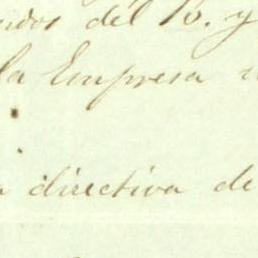 del 10. y
la Empresa
directiva de